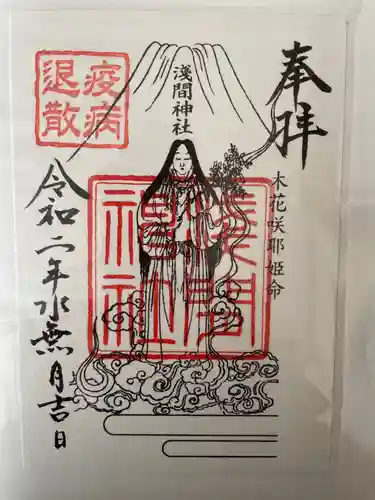 奉拝
木花咲耶姫命
淺間神社
淺間神社
疫病
退散
令和二年水無月吉日